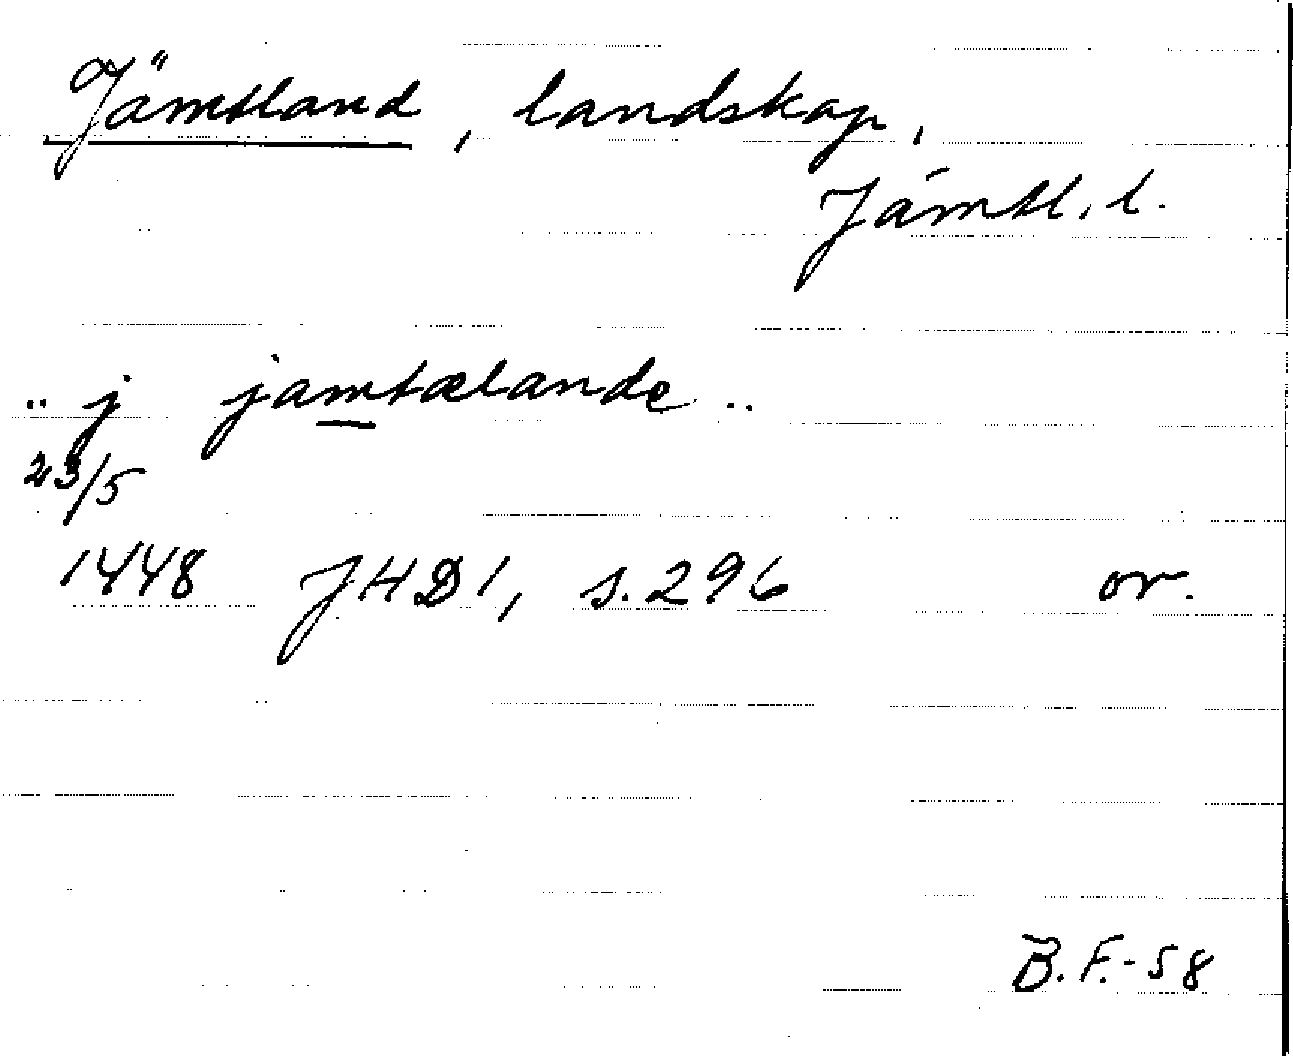 Jämtland, landskap,
Jämtl. l.
.. j jamtælande ..
23/5
1448 JHD 1, s. 296 or.
B.F.-58